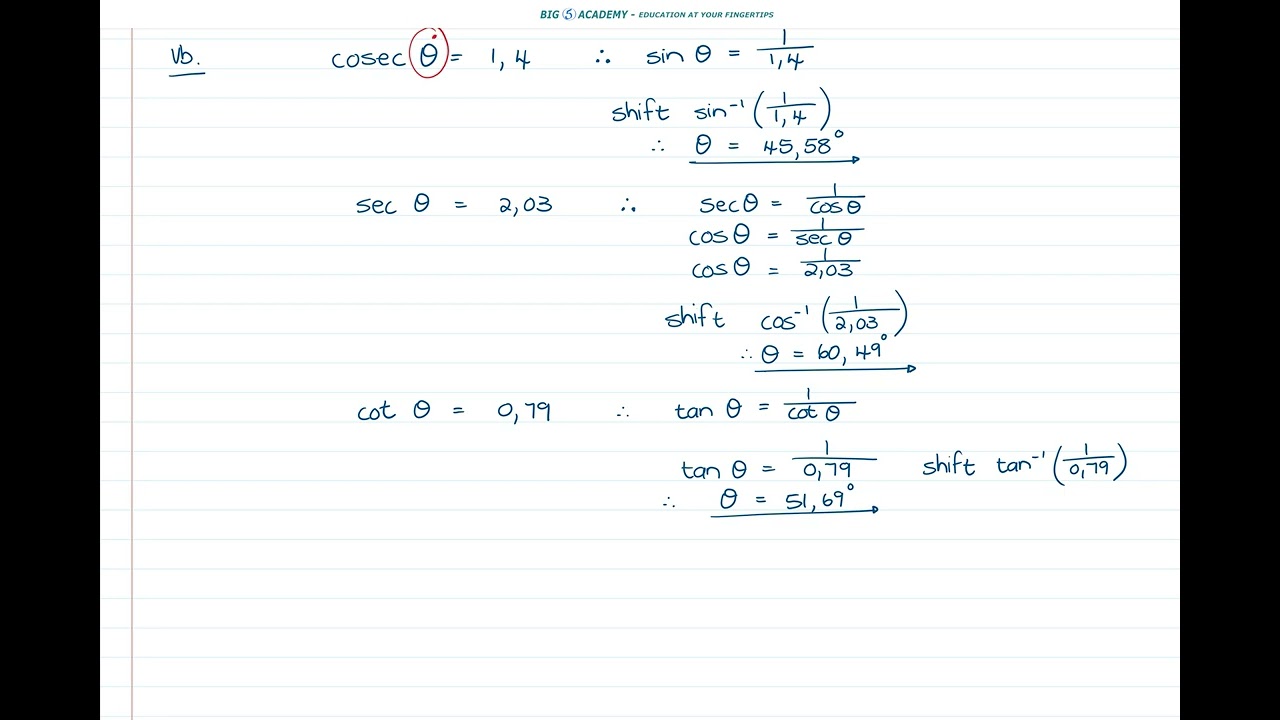 BIG 5 ACADEMY - EDUCATION AT YOUR FINGERTIPS
Vb. cosec θ = 1,4 ∴ sin θ = 1/1,4
shift sin⁻¹(1/1,4)
∴ θ = 45,58°
sec θ = 2,03 ∴ sec θ = 1/cos θ
cos θ = 1/sec θ
cos θ = 1/2,03
shift cos⁻¹(1/2,03)
∴ θ = 60,49°
cot θ = 0,79 ∴ tan θ = 1/cot θ
tan θ = 1/0,79 shift tan⁻¹(1/0,79)
∴ θ = 51,69°